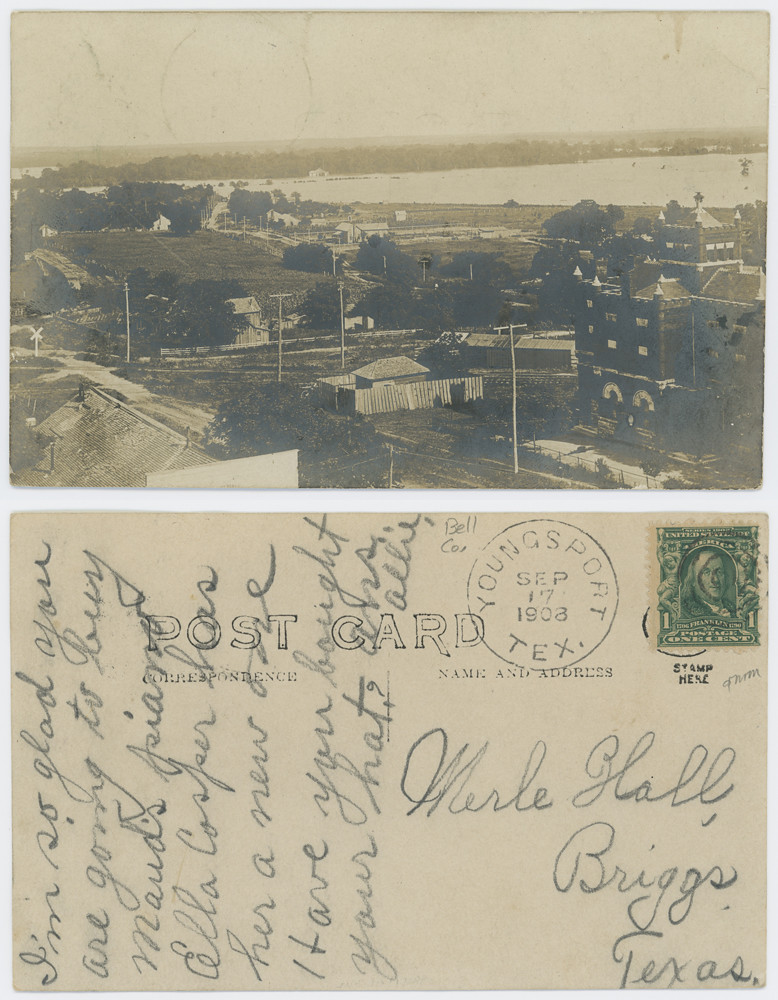 Bell
Co.
YOUNGSPORT
SEP
17
1908
TEX.
SERIES 1902
UNITED STATES OF
AMERICA
1
1706 FRANKLIN 1790
1
POSTAGE
ONE CENT
STAMP
HERE
POST CARD
CORRESPONDENCE
NAME AND ADDRESS
I'm so glad you
are going to buy
Maud's piano
Ella Cosper has
her a new one
Have you bought
your hat? ans.
Allie,
Merle Hall,
Briggs
Texas.